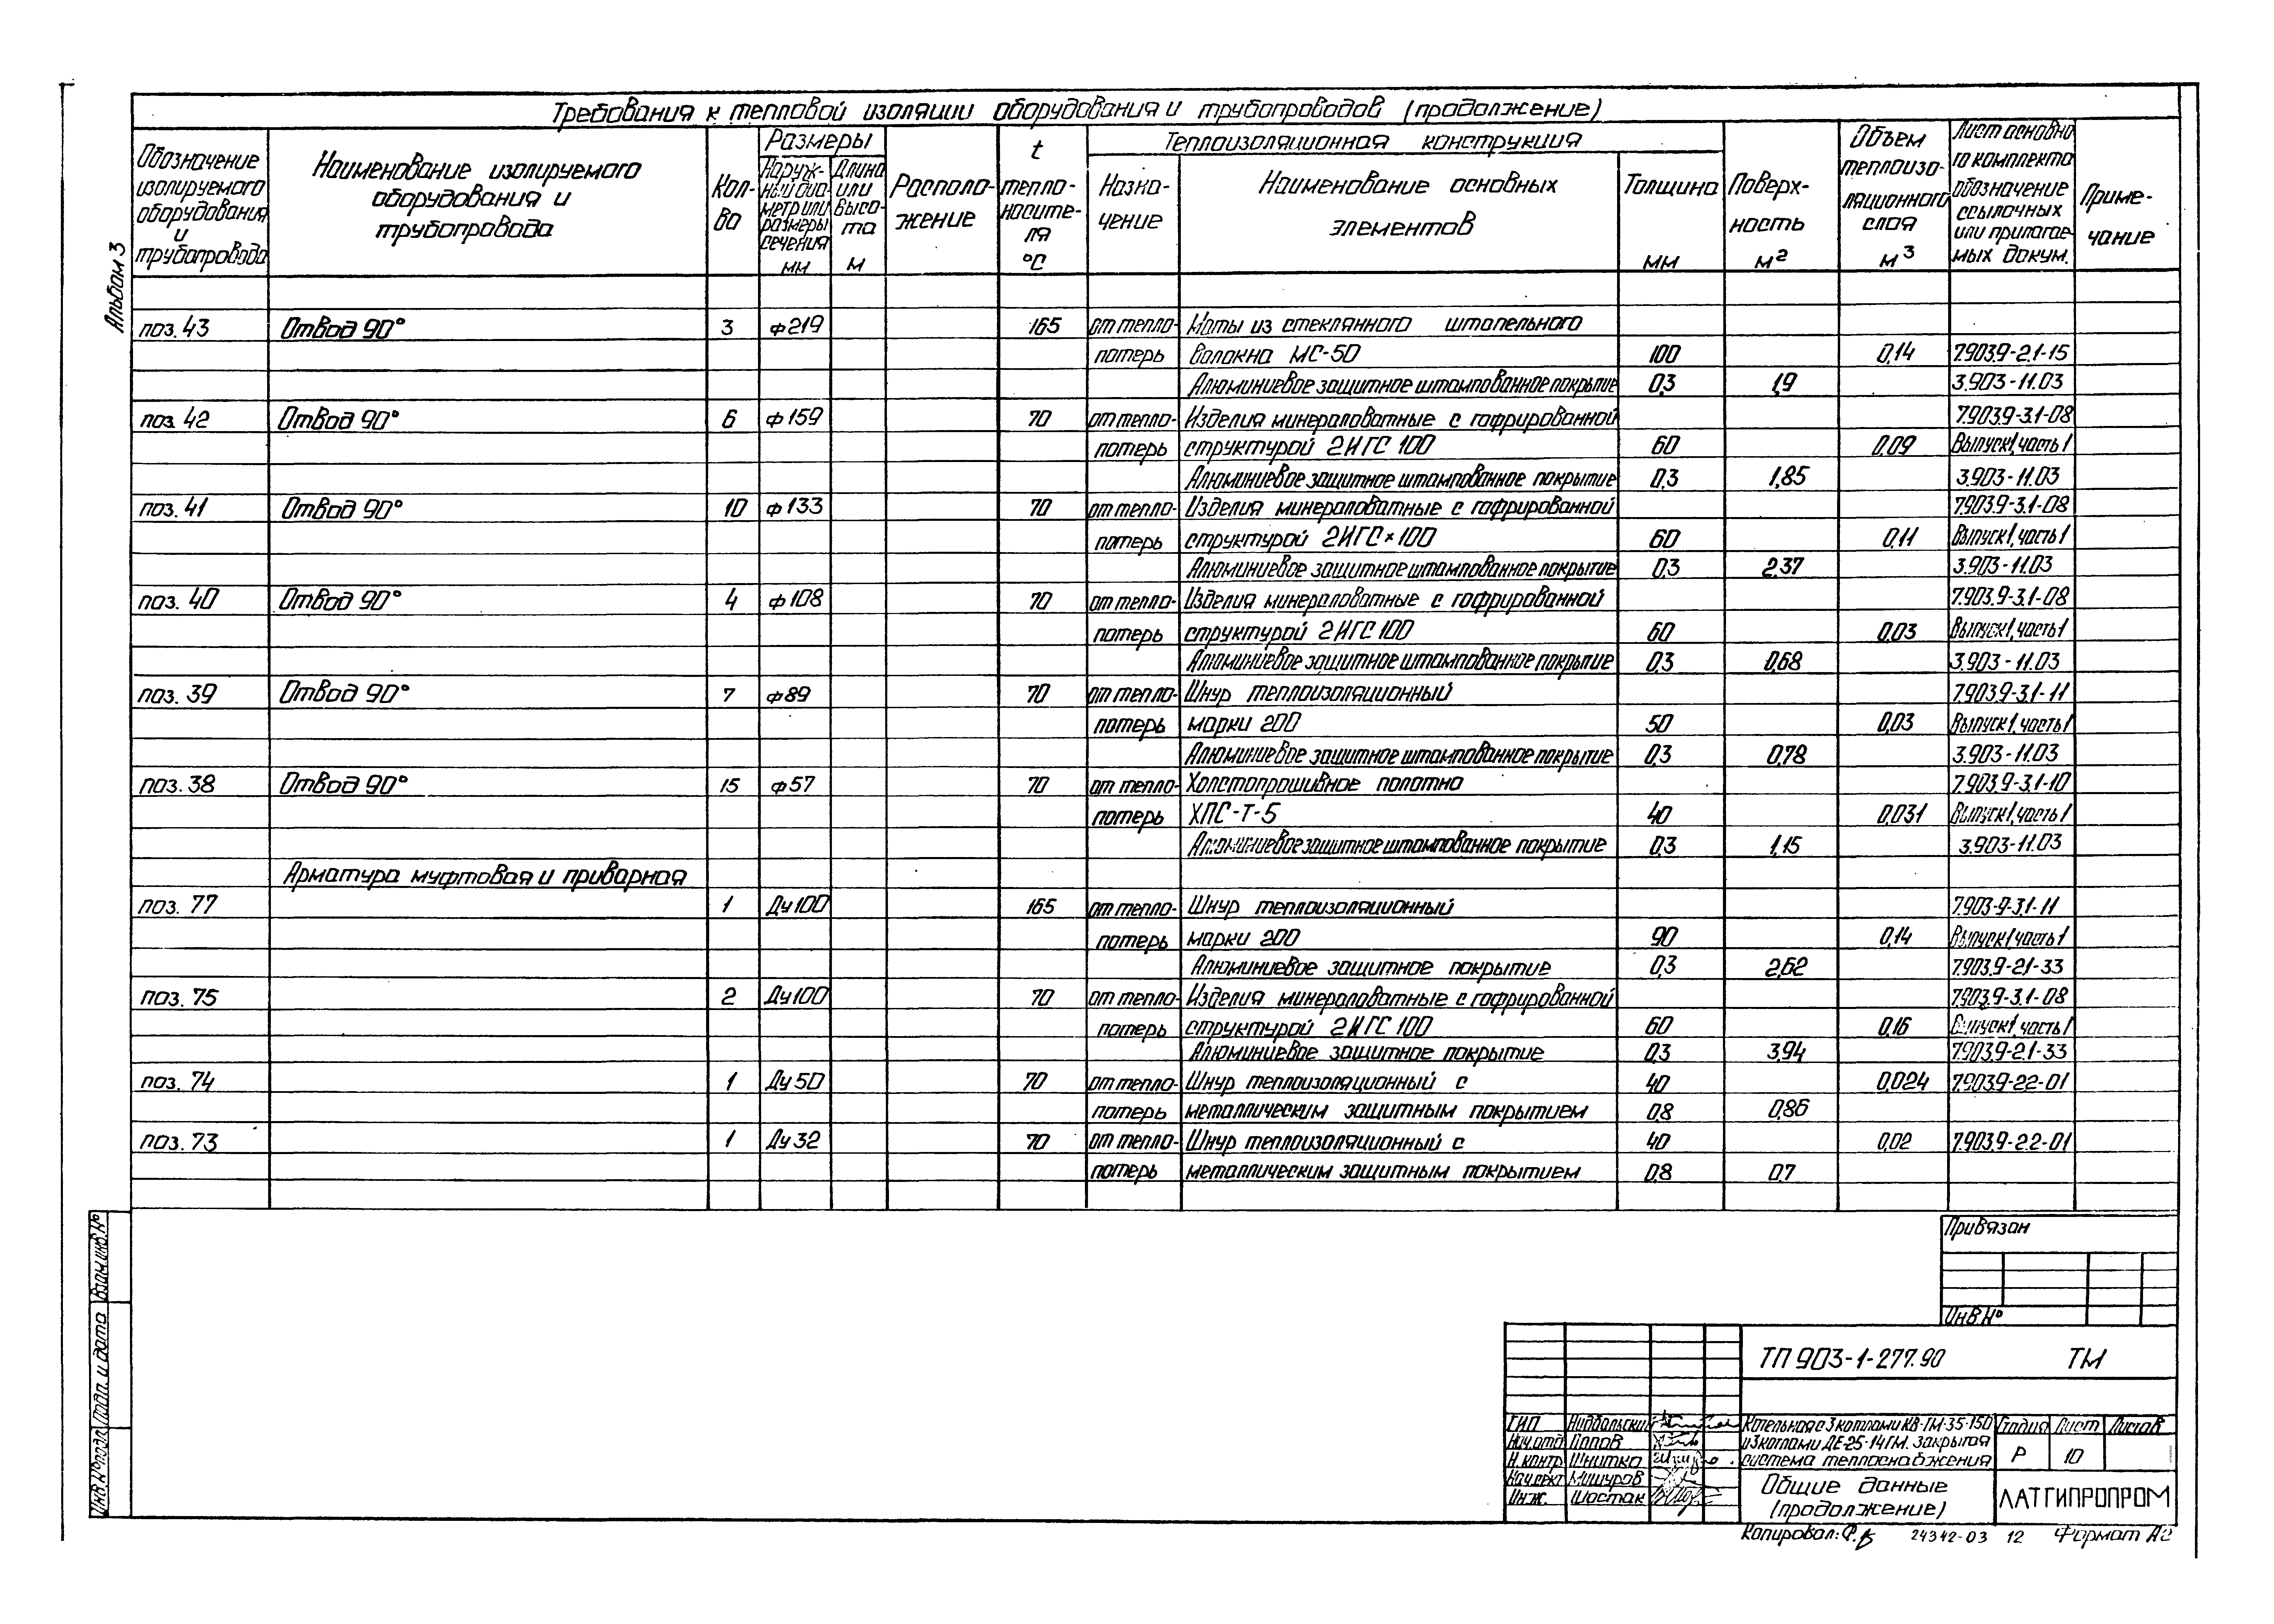 Альбом 3
Требования к тепловой изоляции оборудования и трубопроводов (продолжение)
Обозначение изолируемого оборудования и трубопровода
Наименование изолируемого оборудования и трубопровода
Кол-во
Размеры
Наруж-ный диа-метр или размеры сечения мм
Длина или высо-та м
Располо-жение
t тепло-носите-ля °С
Теплоизоляционная конструкция
Назна-чение
Наименование основных элементов
Толщина мм
Поверх-ность м²
Объем теплоизо-ляционного слоя м³
Лист основно го комплекта обозначение ссылочных или прилагае-мых докум.
Приме-чание
поз. 43 Отвод 90° 3 ф219 165 от тепло- Маты из стеклянного штапельного
потерь волокна МС-50 100 0,14 7.903.9-2.1-15
Алюминиевое защитное штампованное покрытие 0,3 1,9 3.903-11.03
поз. 42 Отвод 90° 6 ф159 70 от тепло- Изделия минераловатные с гофрированной 7.903.9-3.1-08
потерь структурой 2ИГС 100 60 0,09 Выпуск 1, часть 1
Алюминиевое защитное штампованное покрытие 0,3 1,85 3.903-11.03
поз. 41 Отвод 90° 10 ф133 70 от тепло- Изделия минераловатные с гофрированной 7.903.9-3.1-08
потерь структурой 2ИГС×100 60 0,11 Выпуск 1, часть 1
Алюминиевое защитное штампованное покрытие 0,3 2.37 3.903-11.03
поз. 40 Отвод 90° 4 ф108 70 от тепло- Изделия минераловатные с гофрированной 7.903.9-3.1-08
потерь структурой 2ИГС 100 60 0,03 Выпуск 1, часть 1
Алюминиевое защитное штампованное покрытие 0,3 0,68 3.903-11.03
поз. 39 Отвод 90° 7 ф89 70 от тепло- Шнур теплоизоляционный 7.903.9-3.1-11
потерь марки 200 50 0,03 Выпуск 1, часть 1
Алюминиевое защитное штампованное покрытие 0,3 0,78 3.903-11.03
поз. 38 Отвод 90° 15 ф57 70 от тепло- Холстопрошивное полотно 7.903.9-3.1-10
потерь ХПС-Т-5 40 0,031 Выпуск 1, часть 1
Алюминиевое защитное штампованное покрытие 0,3 1,15 3.903-11.03
Арматура муфтовая и приварная
поз. 77 1 Ду100 165 от тепло- Шнур теплоизоляционный 7.903-9-3.1-11
потерь марки 200 90 0,14 Выпуск 1, часть 1
Алюминиевое защитное покрытие 0,3 2,62 7.903.9-21-33
поз. 75 2 Ду100 70 от тепло- Изделия минераловатные с гофрированной 7.903.9-3.1-08
потерь структурой 2ИГС 100 60 0,16 Выпуск 1, часть 1
Алюминиевое защитное покрытие 0,3 3,94 7.903.9-2.1-33
поз. 74 1 Ду 50 70 от тепло- Шнур теплоизоляционный с 40 0,024 7.903.9-2.2-01
потерь металлическим защитным покрытием 0,8 0,86
поз. 73 1 Ду 32 70 от тепло- Шнур теплоизоляционный с 40 0,02 7.903.9-2.2-01
потерь металлическим защитным покрытием 0,8 0,7
Взам. инв. №
Подп. и дата
Инв. № подл.
Привязан
Инв №
ТП 903-1-277.90 ТМ
ГИП
Нач.отд Попов
Н.контр Шнитко
Нач.сект Мишуров
Инж. Шостак
Котельная с 3 котлами КВ-ГМ-35-150
и 3 котлами ДЕ-25-14ГМ. Закрытая
система теплоснабжения
Стадия Лист Листов
Р 10
Общие данные
(продолжение)
ЛАТГИПРОПРОМ
Копировал:
24342-03 12 Формат А2